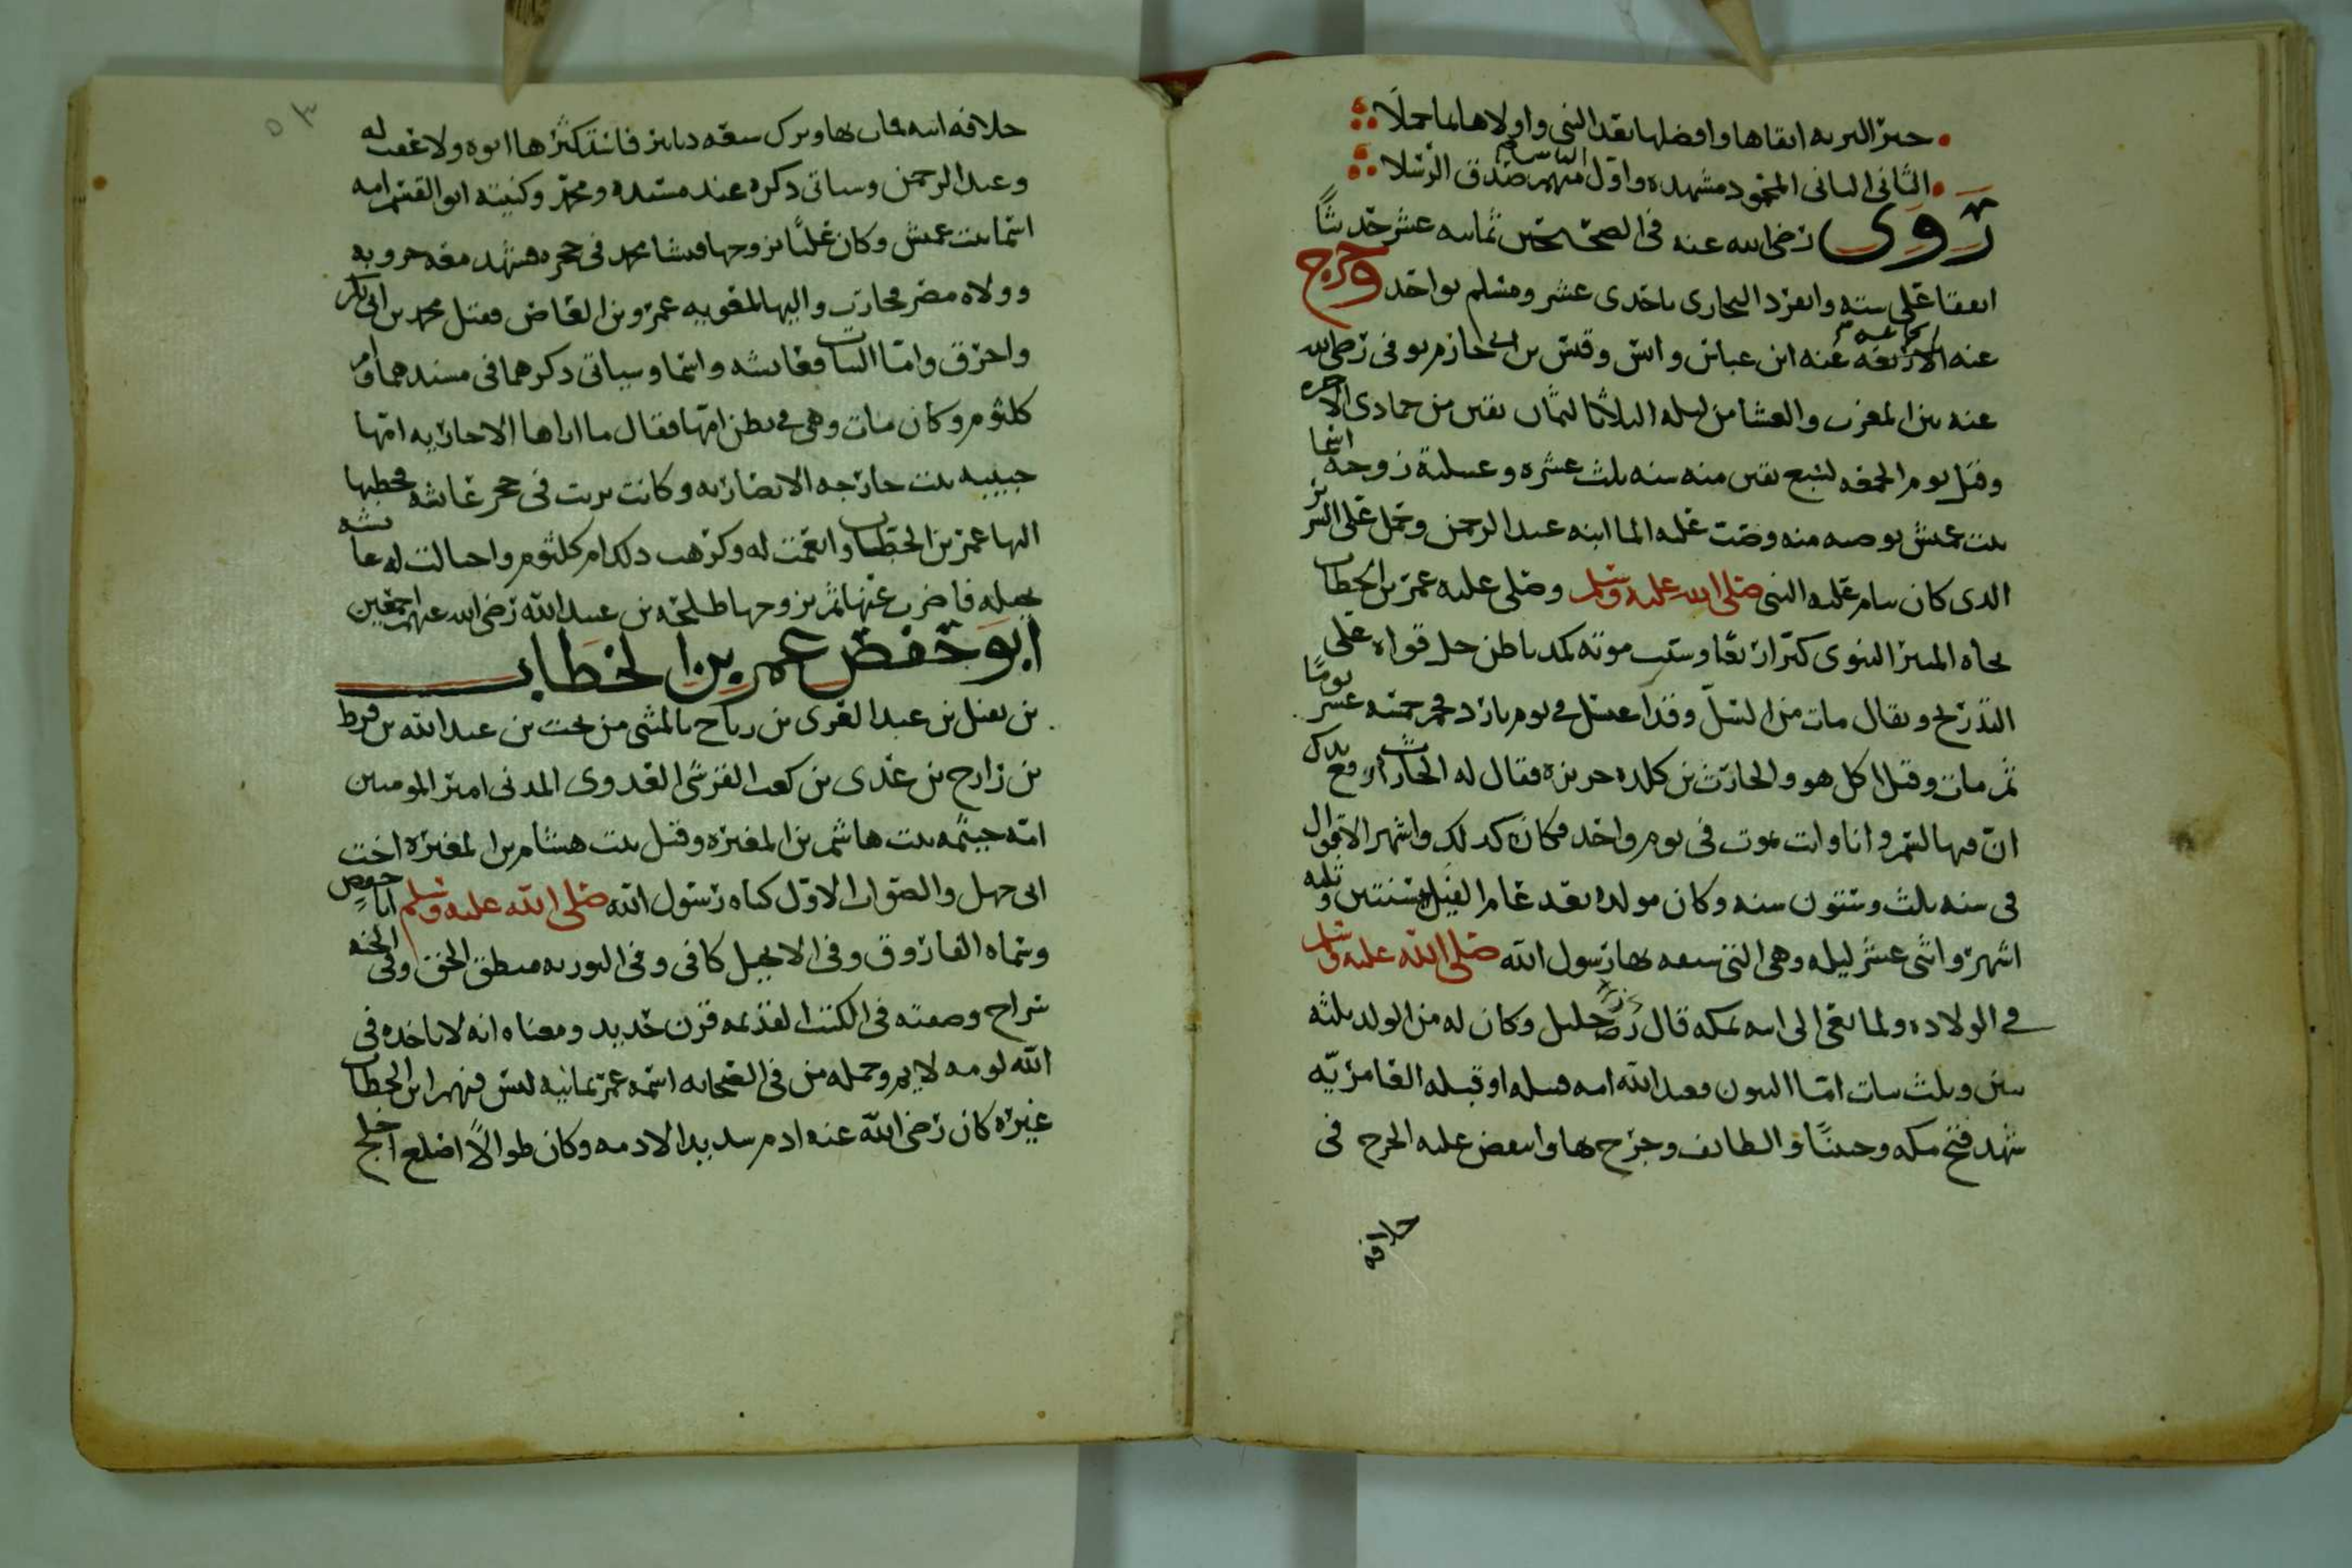 خير البريه اتقاها وافضلها بعد النبي واولاها بما حملا
الثاني التاني المحمود مشهده واول الناس منهم صدق الرسلا
روى رضي الله عنه في الصحيحين ثمانيه عشر حديثا
اتفقا على سته وانفرد البخاري باحدى عشر ومسلم بواحد وخرج
عنه الاربعه عنه ابن عباس وانس وقيس بن ابي حازم توفي رضي الله
عنه بين المغرب والعشا من ليله الثلاثا لثمان بقين من جمادى الاخره
وقيل يوم الجمعه لتسع بقين منه سنه ثلث عشره وغسلته زوجته اسما
بنت عميس بوصيه منه وصبت عليه الما ابنه عبد الرحمن وحمل على السرير
الذي كان ينام عليه النبي صلى الله عليه وسلم وصلى عليه عمر بن الخطاب
تجاه المنبر النبوي كبر اربعا وسبب موته كمد باطن حل قواه على
التدريج ويقال مات من السل وقد اغتسل في يوم بارد فحم خمسه عشر يوما
ثم مات وقيل اكل هو والحارث بن كلده حريره فقال له الحارث ارفع يدك
ان فيها لسم وانا وانت نموت في يوم واحد فكان كذلك واشهر الاقوال
في سنه ثلث وستون سنه وكان مولده بعد عام الفيل بسنتين وثلثه
اشهر واثني عشر ليله وهي التي سبقه بها رسول الله صلى الله عليه وسلم
في الولاده ولما نعي الى ابيه بمكه قال رزء جليل وكان له من الولد ثلثه
بنين وثلث بنات اما البنون فعبد الله امه قتيله او قبله العامريه
شهد فتح مكه وحنينا والطايف وجرح بها وانتقض عليه الجرح في
خلافه
خلافه ابيه فمات بها وترك سبعه دنانير فاستكثرها ابوه ولا عقب له
وعبد الرحمن وسياتي ذكره عند مسنده ومحمد وكنيته ابو القسم امه
اسما بنت عميس وكان علي تزوجها فنشا محمد في حجره فشهد معه حروبه
وولاه مصر فحارب واليها لمعويه عمرو بن العاص فقتل محمد بن ابي بكر
واحرق واما البنات فعايشه واسما وسياتي ذكرهما في مسندهما وام
كلثوم وكان مات وهي في بطن امها فقال ما اراها الا جاريه امها
حبيبه بنت خارجه الانصاريه وكانت تربت في حجر عايشه فخطبها
اليها عمر بن الخطاب وانعمت له وكرهت ذلك ام كلثوم واحتالت له عايشه
بحيله فاضرب عنها ثم تزوجها طلحه بن عبيد الله رضي الله عنهم اجمعين
ابو حفص عمر بن الخطاب
بن نفيل بن عبد العزى بن رياح بالمثنى من تحت بن عبد الله بن قرط
بن زراح بن عدي بن كعب القرشي العدوي المدني امير المومنين
امه حنتمه بنت هاشم بن المغيره وقيل بنت هشام بن المغيره اخت
ابي جهل والصواب الاول كناه رسول الله صلى الله عليه وسلم ابا حفص
وسماه الفاروق وفي الانجيل كافي وفي التوريه منطق الحق وفي الجنه
سراج وصفته في الكتب القديمه قرن حديد ومعناه انه لا ياخذه في
الله لومه لايم وجمله من في الصحابه اسمه عمر ثمانيه ليس فيهم ابن الخطاب
غيره كان رضي الله عنه ادم شديد الادمه وكان طوالا اصلع اجلح